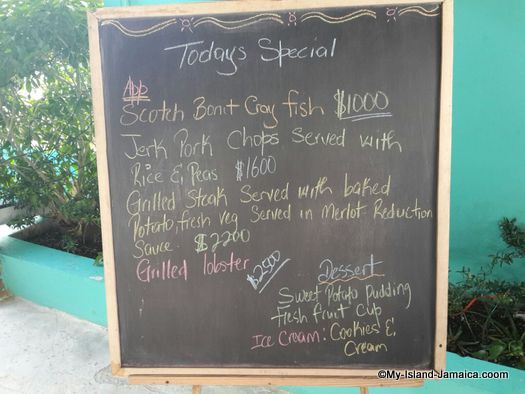 Todays Special
App
Scotch Bonit Cray fish $1000
Jerk Pork Chops Served with
Rice & Peas $1600
Grilled Steak Served with baked
Potato, fresh veg Served in Merlot Reduction
Sauce $2200
Grilled lobster $2500
Dessert
Sweet Potato Pudding
fresh fruit Cup
Ice Cream: Cookies &
Cream
©My-Island-Jamaica.coom